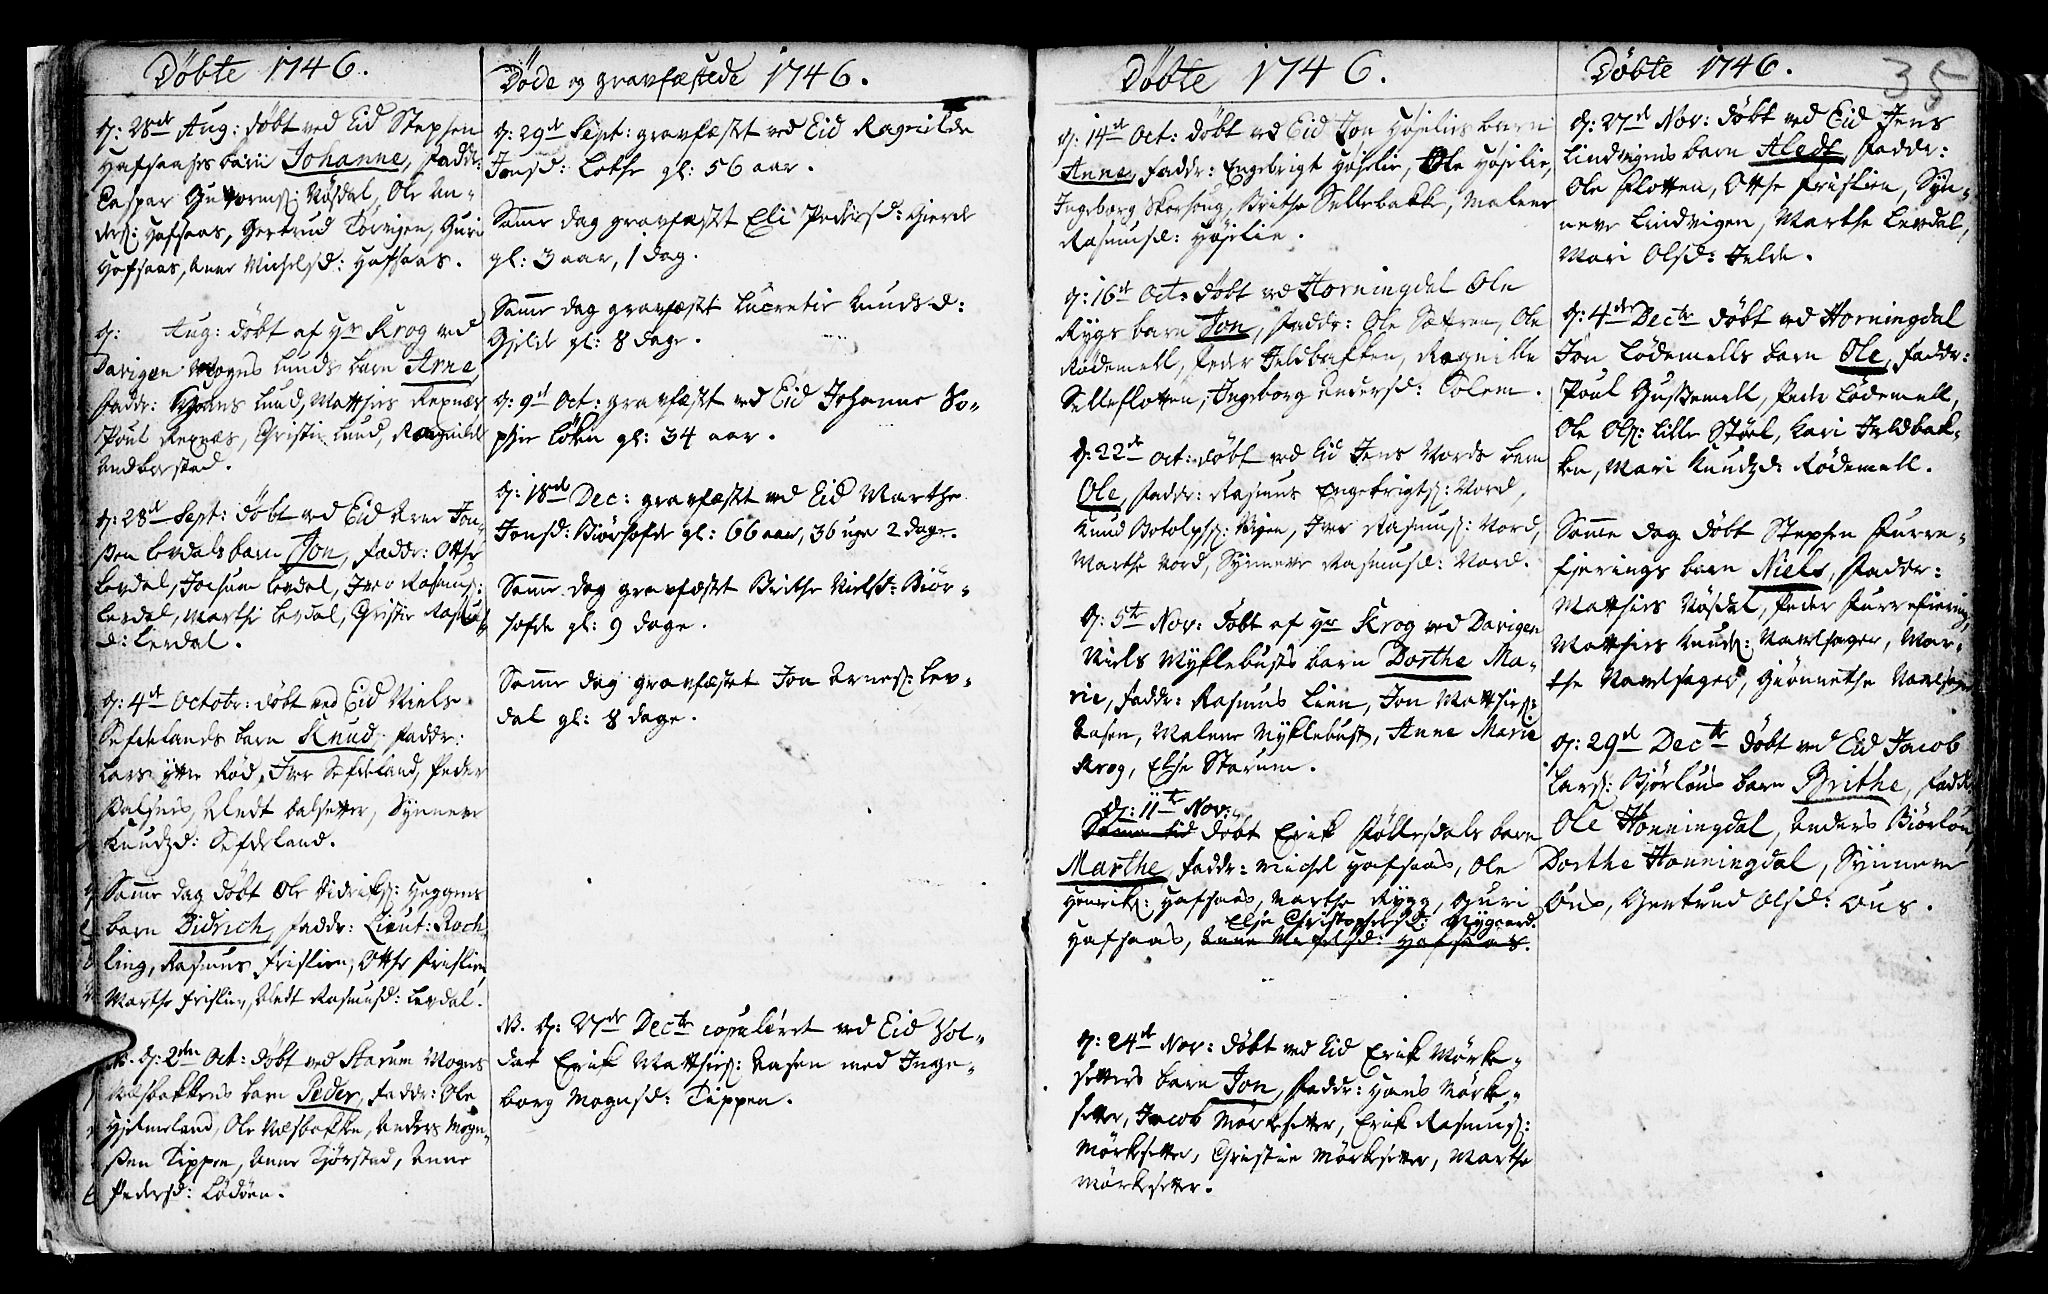 Döbte 1746.
d: 28de Aug: döbt ved Eid Stephen
Hafsaases barn Johanne, Fadd:
Caspar Guttorms: Nösdal, Ole An-
ders: Hafsaas, Gertrud Törvigen, Guri
Hafsaas, Anne Michelsd: Hafsaas.
d: Aug: döbt af Hr Krog ved
Davigen Mogns Lunds barn Arne,
Faddr: Lund, Matthies Rexnæs
Poul Rexnæs, Christie Lund, Ragnilde
d: 28de Sept: döbt ved Eid Arne Jon-
ssen Levdals barn Jon, Faddr: Otthe
Levdal, Jochum Levdal, Iver Rasmus:
Levdal, Marthe Levdal, Christie Rasmus
d: Levdal.
d: 4de Octobr: döbt ved Eid Niels
Sefdelands barn Knud, Faddr:
Lars ytre Röd, Iver Sefdeland, Peder
Aledt Synneve
Knudzd: Sefdeland.
Samme dag döbt Ole Didriks: Heggens
barn Didrich, Faddr: Lieut: Roch-
ling, Rasmus Frislien, Otthe Frislien,
Marthe Frislien, Aledt Rasmusd: Levdal.
NB. d: 2den Oct: döbt ved Starum Mogns
Næsbakkens barn Peder, Faddr: Ole
Hjelmeland, Ole Næsbakke, Anders Mogn-
ssen Tippen, Anne Tjörstad, Anne
Pedersd: Lödöen.
Döde og gravfæstede 1746.
d: 29de Sept: gravfæstet ved Eid Ragnilde
Jonsd: Lothe gl: 56 aar.
Samme dag gravfæstet Eli Pedersd: Gierde
gl: 3 aar, 1 dag.
Samme dag gravfæstet Lucretie Knudsd:
Hjelde gl: 8 dage.
d: 9de Oct: gravfæstet ved Eid Johanne So-
phie Löken gl: 34 aar.
d: 18de Dec: gravfæstet ved Eid Marthe
Jonsd: Biörhofde gl: 66 aar, 36 uger 2 dage.
Samme dag gravfæstet Brithe Nielsd: Biör-
hofde gl: 9 dage.
Samme dag gravfæstet Jon Arnes: Lev-
dal gl: 8 dage.
NB. d: 27de Decbr copuleret ved Eid Sol-
dat Erik Matthies: Aasen med Inge-
borg Mognsd: Tippen.
Döbte 1746.
d: 14de Oct: döbt ved Eid Jon Höjelies barn
Anne, Faddr: Engebrigt Höjelie, Ole Höjelie,
Ingeborg Skorhoug, Brithe Sellebakk, Malene
Rasmusd: Höjelie.
d: 16de Oct: döbt ved Horningdal Ole
Rygs barn Jon, Faddr: Ole Sætren, Ole
Rödemell, Peder Jeldbakken, Ragnille
Selleflotten, Ingeborg Andersd: Tolem.
d: 22de Oct: döbt ved Eid Jens Nords barn
Ole, Faddr: Rasmus Engebrigts: Nord,
Knud Botolphs: Vigen, Iver Rasmus: Nord,
Marthe Nord, Synneve Rasmusd: Nord.
d: 5te Nov: döbt af Hr Krog ved Davigen
Niels Myklebusts barn Dorthe Ma-
rie, Faddr: Rasmus Lien, Jon Matthies:
Aasen, Malene Myklebust, Anne Marie
Krog, Else Starum.
d: 11te Nov:
döbt Erik Föllesdals barn
Marthe, Faddr: Michel Hafsaas, Ole
Henriks: Hafsaas, Marthe Rygg, Guri
Else Christophersd: Nygaard.
Hafsaas, Anne Hafsaas.
d: 24de Nov: döbt ved Eid Erik Mörke-
setters barn Jon, Faddr: Hans Mörke-
setter, Jacob Mörkesetter, Erik Rasmus:
Mörkesetter, Christie Mörkesetter, Marthe
Mörkesetter.
Döbte 1746.
35
d: 27de Nov: döbt ved Eid Jens
Lindvigens barn Aledt, Faddr:
Ole Flotten, Otthe Frislien, Syn-
neve Lindvigen, Marthe Levdal,
Mari Olsd: Jelde.
d: 4de Decbr döbt ved Horningdal
Jon Lödemells barn Ole, Faddr:
Poul Gussemell, Peder Lödemell,
Ole Ols: Lille Stöel, Kari Jeldbak-
ken, Mari Knudzd: Rödemell.
Samme dag döbt Stephen Furre-
fjerings barn Niels, Faddr:
Matthies Nösdal, Peder Furrefiering,
Matthies Knuds: Navelsager, Mar-
the Navelsager, Giönnethe Navelsager
d: 29de Decbr döbt ved Eid Jacob
Lars: Bjørlous barn Brithe, Faddr:
Ole Honningdal, Anders Biörlou,
Dorthe Honningdal, Synneve
Ous, Gertrud Olsd: Ous.